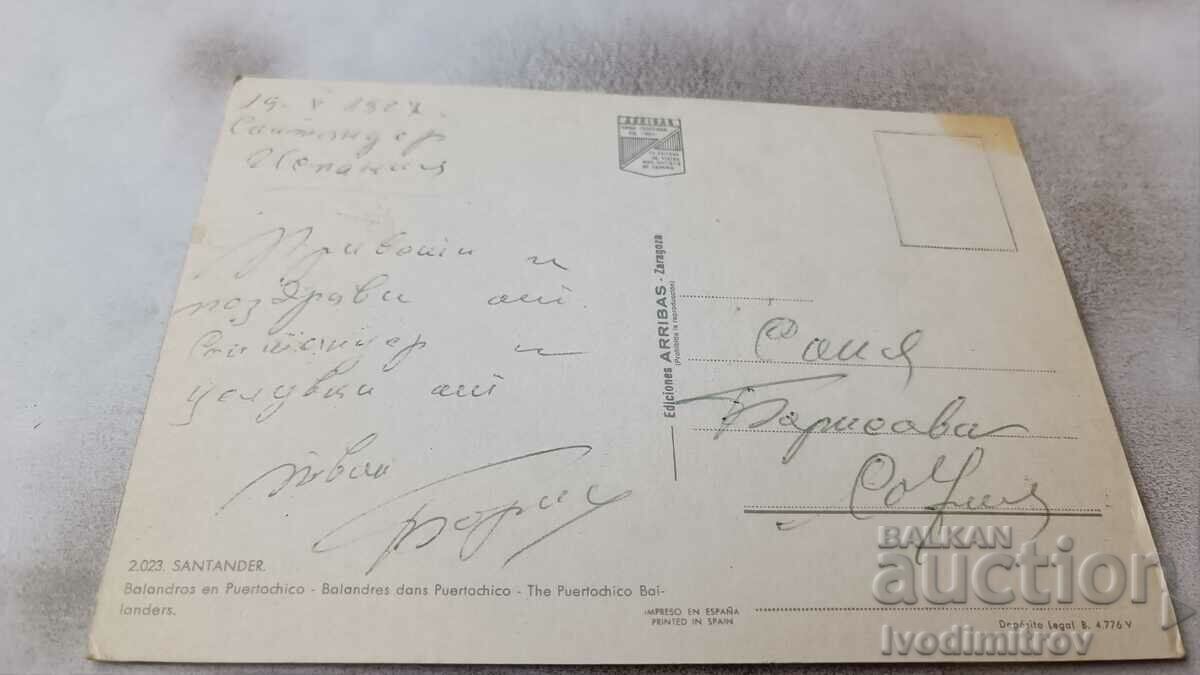 Сантандер
Испания
Привети и
поздрави от
Сантандер и
целувки от
твоя
Борис
2.023. SANTANDER.
Balandros en Puertochico - Balandres dans Puertochico - The Puertochico Bai-
landers.
Ediciones ARRIBAS - Zaragoza
(Prohibida la reproducción)
Соня
Борисова
София
IMPRESO EN ESPAÑA
PRINTED IN SPAIN
Depósito Legal B. 4.776 V
BALKAN
auction
Ivodimitrov